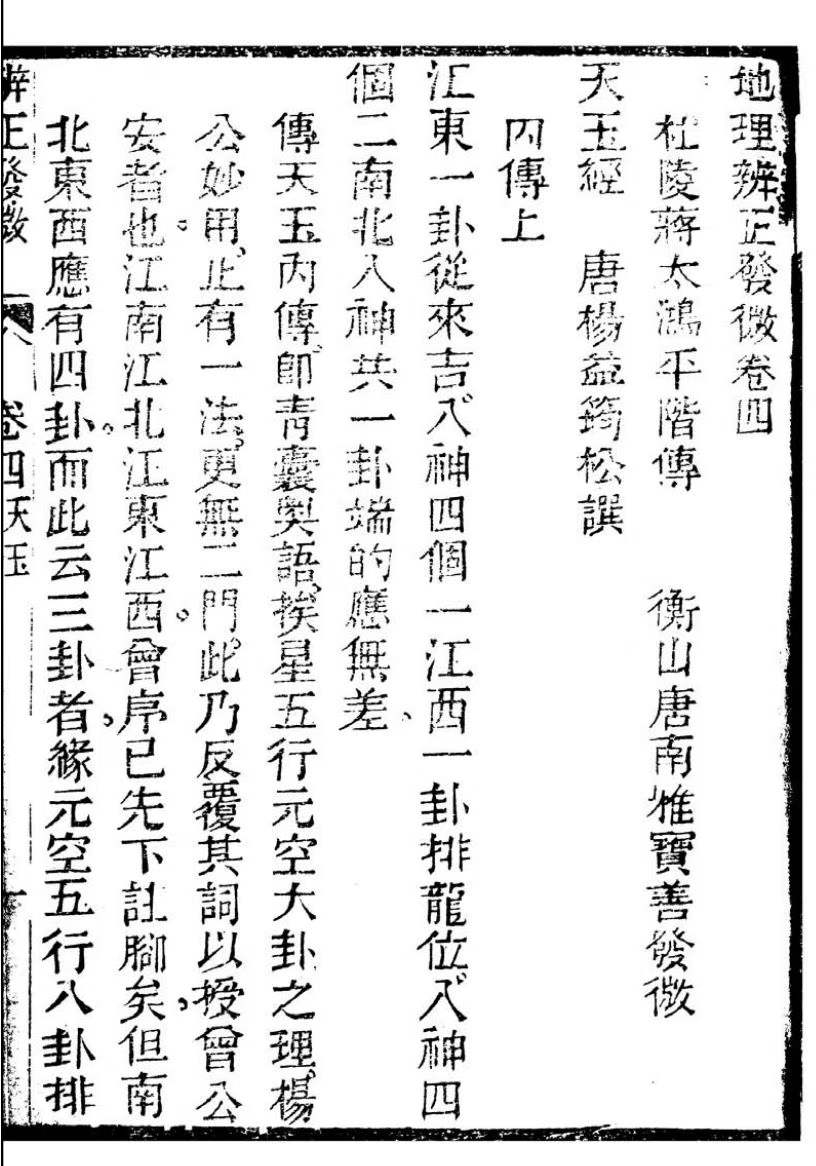 地理辨正發微卷四
杜陵蔣大鴻平階傳 衡山唐南雅寶善發微
天玉經 唐楊益筠松譔
內傳上
江東一卦從來吉八神四個一江西一卦排龍位八神四
個二南北八神共一卦端的應無差、
傳天玉內傳、卽靑囊奧語、挨星五行元空大卦之理、楊
公妙用、止有一法、更無二門、此乃反覆其詞以授曾公
安者也。江南江北江東江西。曾序已先下註腳矣、但南
北東西應有四卦。而此云三卦者、緣元空五行八卦排
辨正發微 卷四天玉